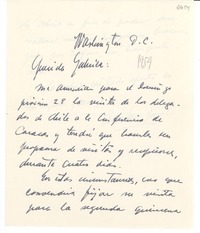 Washington D.C.
Querida Gabriela:
1954
Me anuncian para el domingo
próximo 28 la visita de los delega-
dos de Chile a la Conferencia de
Caracas, y tendré que hacerles un
programa de visitas y recepciones,
durante cuatro días.
En estas circunstancias, creo que
convendría fijar su visita
para la segunda quincena